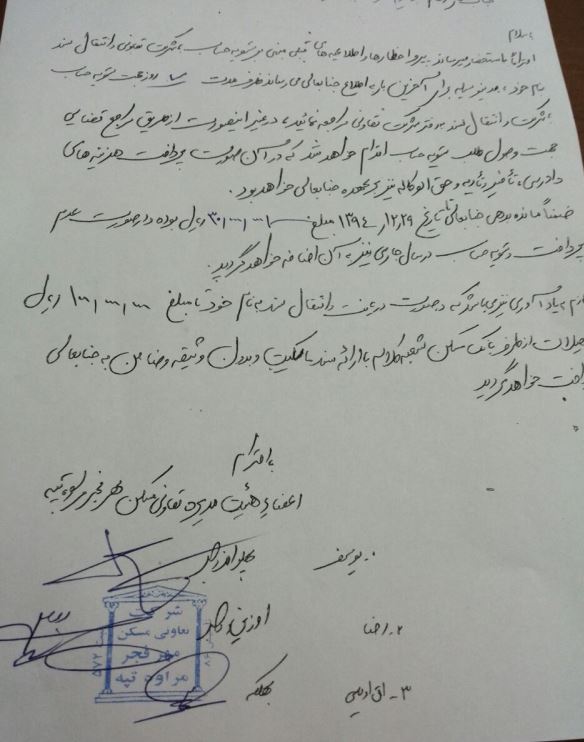 باسلام
احتراماً باستحضار میرساند پیرو اخطارها و اطلاعیه های قبلی مبنی بر تسویه حساب با شرکت تعاونی و انتقال سند
بنام خود، بدینوسیله برای آخرین بار به اطلاع جنابعالی می رساند ظرف مدت ۷ روز جهت تسویه حساب
با شرکت و انتقال سند به دفتر شرکت تعاونی مراجعه نمائید، در غیر اینصورت از طریق مراجع قضایی
جهت وصول طلب تسویه حساب اقدام خواهد شد که در آن صورت پرداخت هزینه های
دادرسی، تأخیر تأدیه و حق الوکاله نیز بر عهده جنابعالی خواهد بود.
ضمناً مانده بدهی جنابعالی تا تاریخ ۱۳۹۴/۱۲/۲۹ مبلغ ریال بوده و در صورت عدم
پرداخت و تسویه حساب در سال جاری نیز به آن اضافه خواهد گردید.
لازم به یادآوری می باشد که در صورت دریافت و انتقال سند به نام خود تا مبلغ ۱۰۰/۰۰۰/۰۰۰ ریال
تسهیلات از طرف بانک مسکن شعبه کلاله با ارائه سند مالکیت و بدون وثیقه و ضامن به جنابعالی
پرداخت خواهد گردید
با احترام
اعضاء هیئت مدیره تعاونی مسکن مهر فجر مراوه تپه
یوسف
۲- رضا
۳-
شرکت
تعاونی مسکن
مهر فجر
مراوه تپه